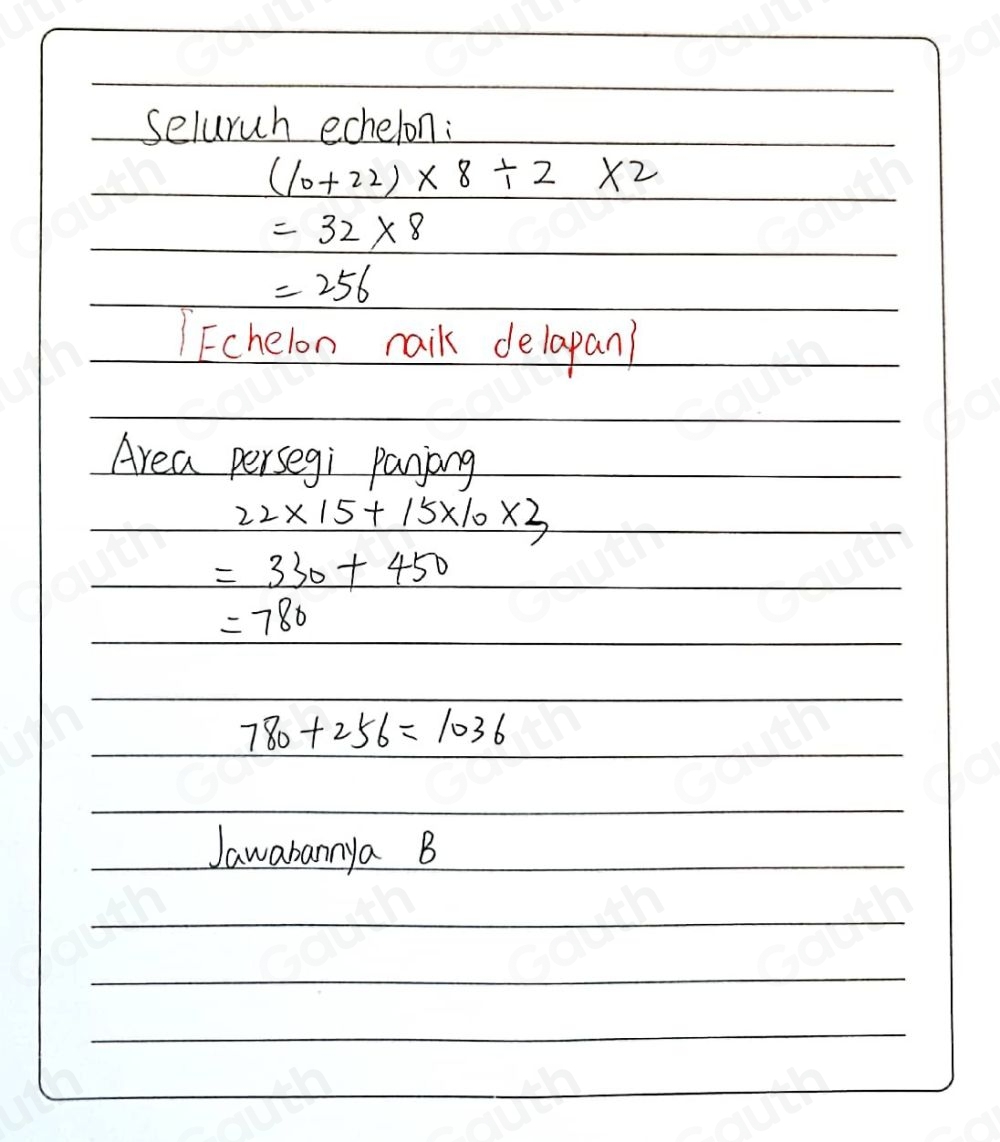 Seluruh echelon:
(10+22) × 8 ÷ 2 × 2
= 32 × 8
= 256
[Echelon naik delapan]
Area persegi panjang
22 × 15 + 15 × 10 × 3
= 330 + 450
= 780
780 + 256 = 1036
Jawabannya B
Gauth